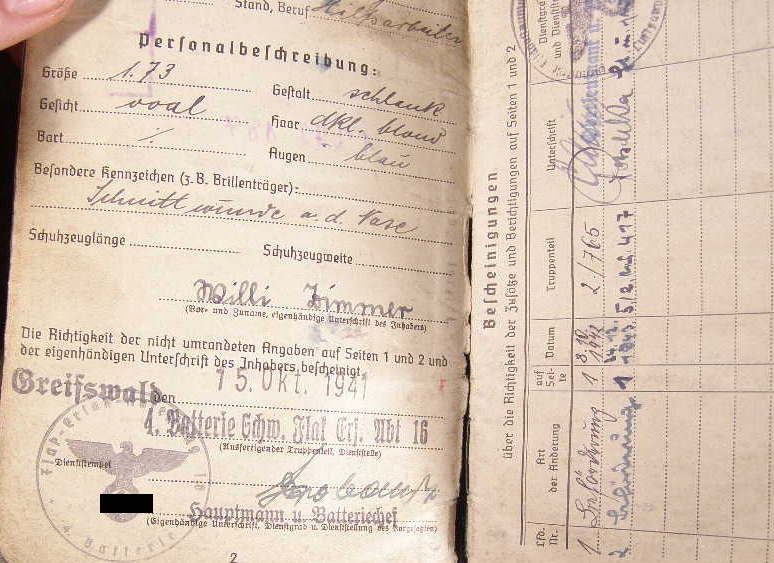 Stand, Beruf Hilfsarbeiter
Personalbeschreibung:
Größe 1.73 Gestalt schlank
Gesicht oval Haar dkl. blond
Bart ·/. Augen blau
Besondere Kennzeichen (z.B. Brillenträger):
Schnittwunde a. d. Nase
Schuhzeuglänge Schuhzeugweite
Willi Zimmer
(Vor- und Zuname, eigenhändige Unterschrift des Inhabers)
Die Richtigkeit der nicht umrandeten Angaben auf Seiten 1 und 2 und
der eigenhändigen Unterschrift des Inhabers bescheinigt
Greifswald den 15. Okt. 1941
4. Batterie Schw. Flak Ers. Abt 16
(Ausfertigender Truppenteil, Dienststelle)
Dienststempel
Hauptmann u. Batteriechef
(Eigenhändige Unterschrift, Dienstgrad u. Dienststellung des Vorgesetzten)
4. Batterie
2
Bescheinigungen
über die Richtigkeit der Zusätze und Berichtigungen auf Seiten 1 und 2
Lfd. Nr.
Art der Änderung
auf Seite
Datum
Truppenteil
Unterschrift
Dienstgrad und
1 Beförderung 1 8.10. 1942 2./765
2 Beförderung 1